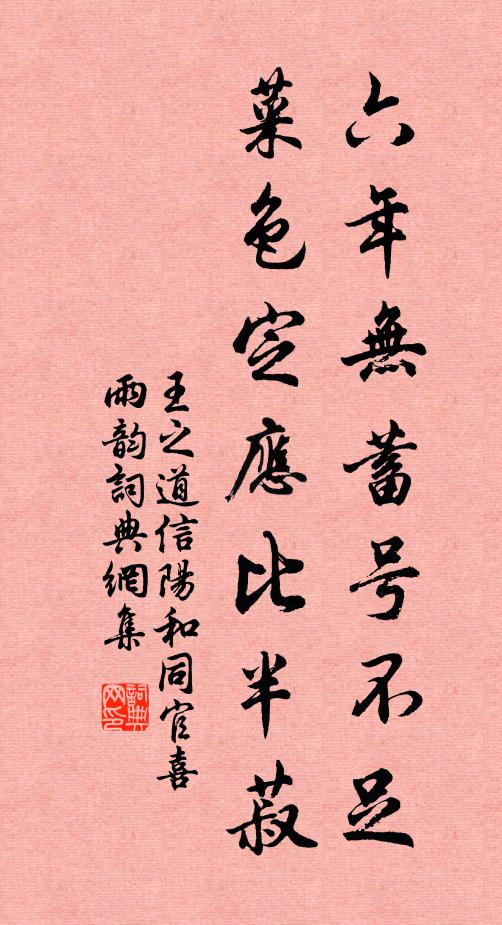 六年無蓄号不足
菜色定應比半菽
王之道信陽和同官喜
雨韵詞典網集
詞典网印